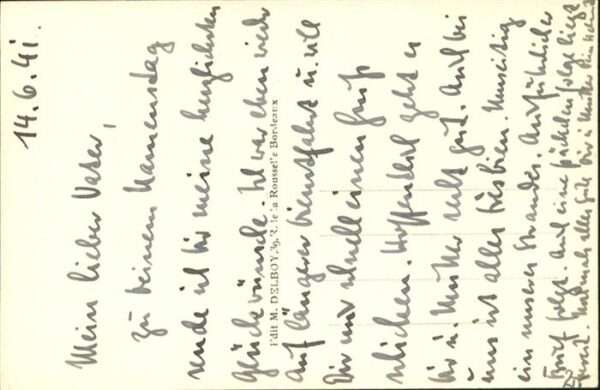 14.6.41.
Mein lieber Vater,
zu Deinem Namenstag
sende ich Dir meine herzlichsten
Glückwünsche. Ich war eben wieder
auf längerer Dienstfahrt u. will
Dir nur schnell einen Gruß
schicken. Hoffentlich geht es
Dir u. Mutter recht gut. Auch bei
uns ist alles très bien. Umseitig
ein unserer Strandes. Ausführlicher
Brief folgt. Auch eine Päckchen folge liegt
bereit. Nochmals alles gute Dir u Mutter Dein
Edit M. DELBOY, 39, R. de la Rousselle Bordeaux